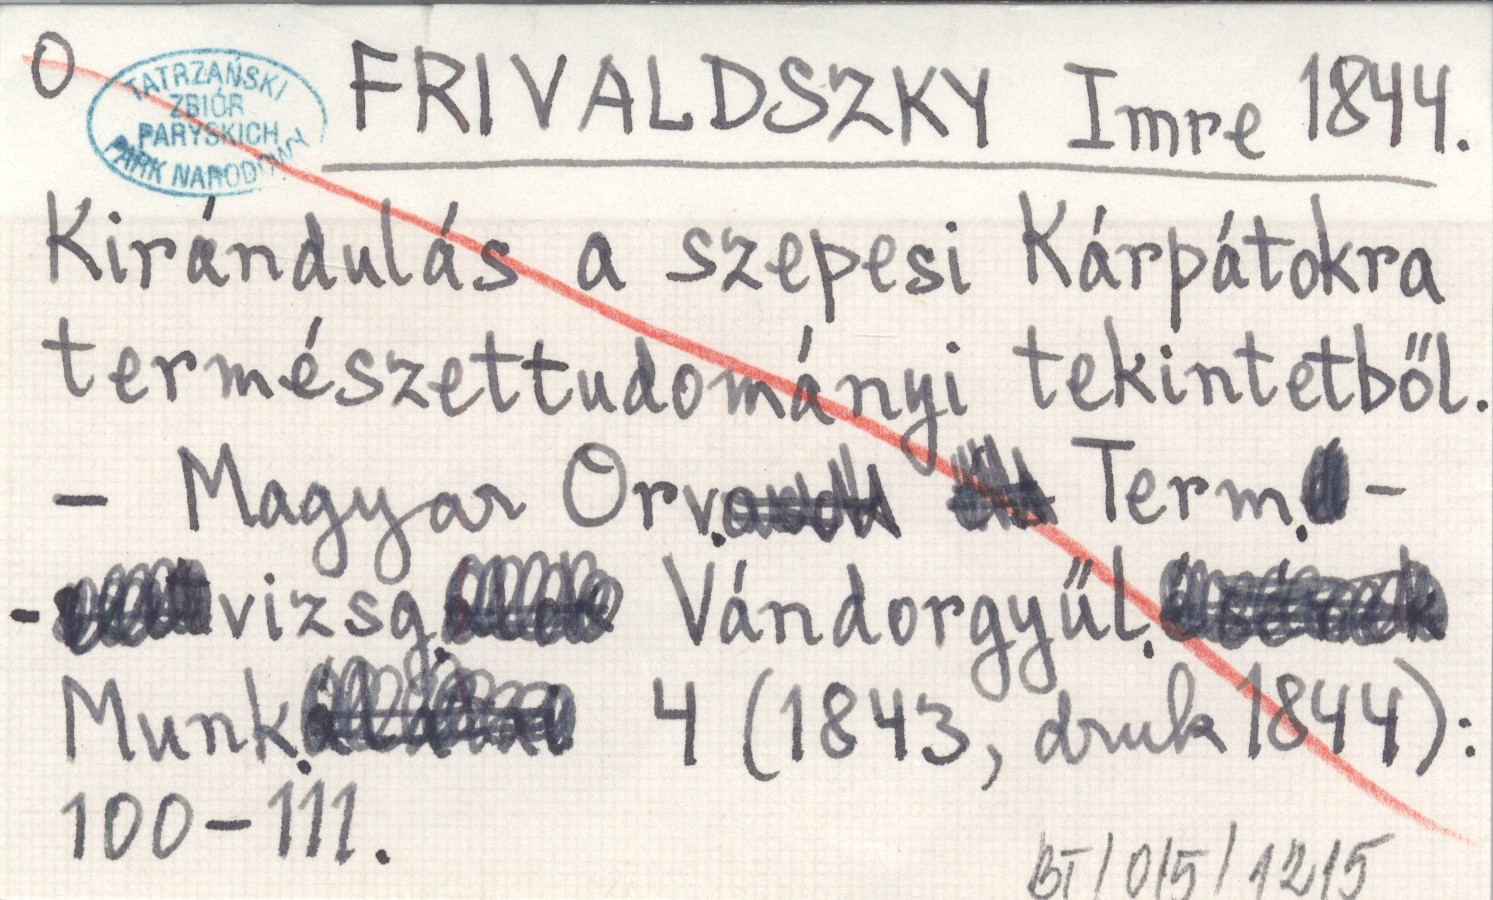 O
TATRZAŃSKI
ZBIÓR
PARYSKICH
PARK NARODOWY
FRIVALDSZKY Imre 1844.
Kirándulás a szepesi Kárpátokra
természettudományi tekintetből.
- Magyar Orv. Term. -
- vizsg. Vándorgyűl.
Munk. 4 (1843, druk 1844):
100-111.
BT/015/1215